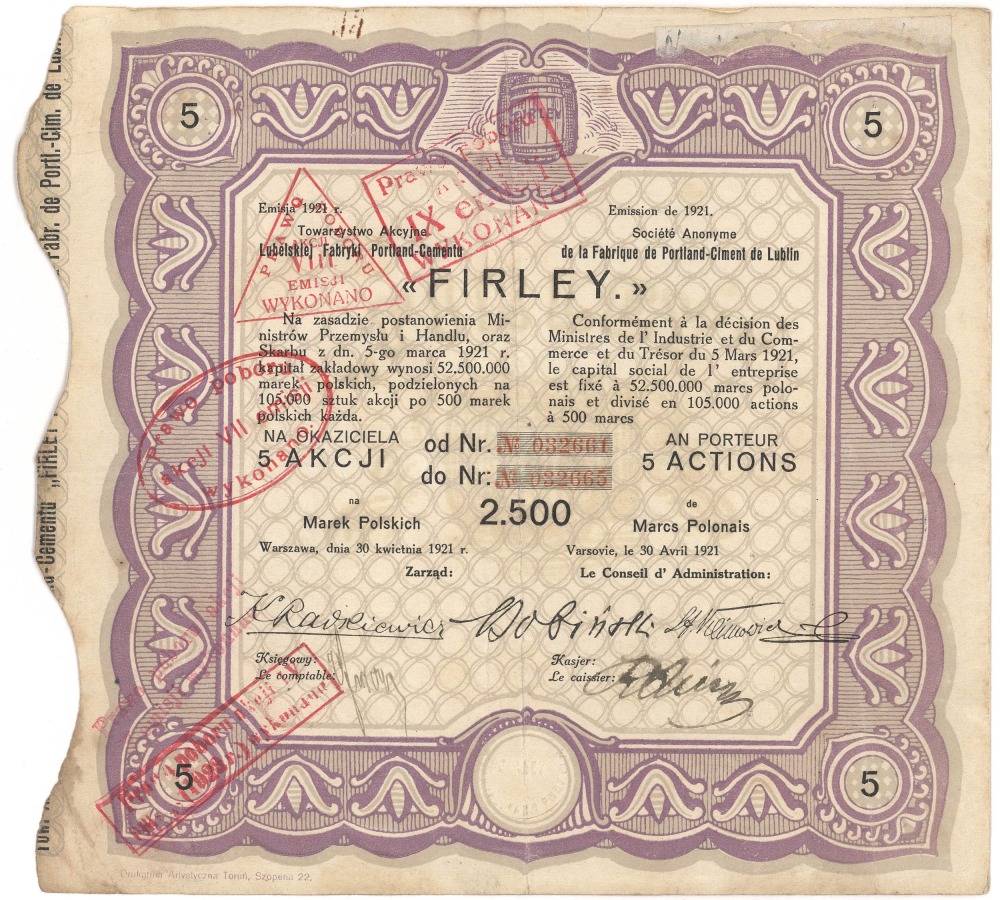 5
5
Emisja 1921 r.
Towarzystwo Akcyjne
Lubelskiej Fabryki Portland-Cementu
Emission de 1921.
Société Anonyme
de la Fabrique de Portland-Ciment de Lublin
«FIRLEY.»
Na zasadzie postanowienia Mi-
nistrów Przemysłu i Handlu, oraz
Skarbu z dn. 5-go marca 1921 r.
kapitał zakładowy wynosi 52.500.000
marek polskich, podzielonych na
105.000 sztuk akcji po 500 marek
polskich każda.
Conformément à la décision des
Ministres de l' Industrie et du Com-
merce et du Trésor du 5 Mars 1921,
le capital social de l' entreprise
est fixé à 52.500.000 marcs polo-
nais et divisé en 105.000 actions
à 500 marcs
NA OKAZICIELA
5 AKCJI
od Nr. № 032661
do Nr: № 032665
AN PORTEUR
5 ACTIONS
na
Marek Polskich
2.500
de
Marcs Polonais
Warszawa, dnia 30 kwietnia 1921 r.
Varsovie, le 30 Avril 1921
Zarząd:
Le Conseil d' Administration:
Księgowy:
Le comptable:
Kasjer:
Le caissier:
5
5
Drukarnia Artystyczna Toruń, Szopena 22.
Prawo poboru
IX emisji
WYKONANO
PRAWO POBORU
AKCJI
VIII
EMISJI
WYKONANO
Prawo poboru
akcji VII emisji
wykonano.
Fabr. de Portl.-Cim. de Lubl
-Cementu „FIRLEY